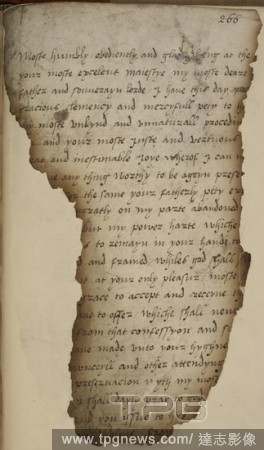 266
Moste humbly obediently and gladly lieng at the
your moste excelent majestye my moste deare
father and souverayn lorde I have this day
gracious clemency and mercyfull pety to
moste unkynd and unnaturall procedin
and your moste juste and vertuous
and inestimable love wherof I can
any thing worthy to be agayn presen
the same your fatherly pety
on my parte abandoned
but my power harte whiche
to remayn in your hande to
and framed whiles god shall
at your only pleasur moste
grace to accept and receive
to offer whiche shall never
from that confessyon and
made unto your hyghne
and other attendyng
preservacion wyth my
I shall
and you
TPG
www.tpgnews.com/達志影像